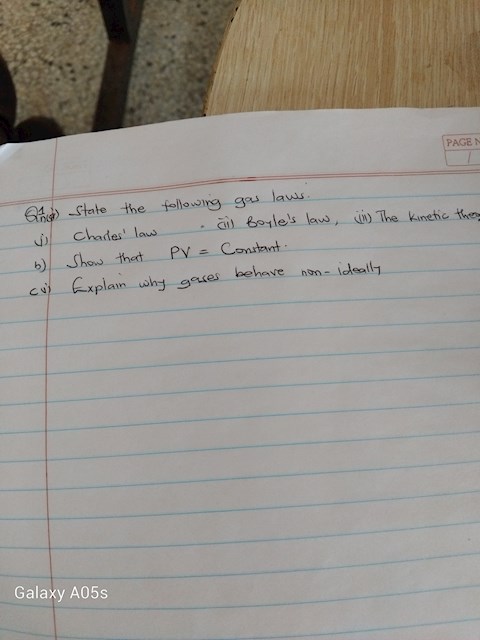 PAGE N
1
Qn1 a) State the following gas laws.
i) Charles' law . (ii) Boyle's law, (iii) The kinetic theo
b) Show that PV = Constant.
c i) Explain why gases behave non-ideally
Galaxy A05s